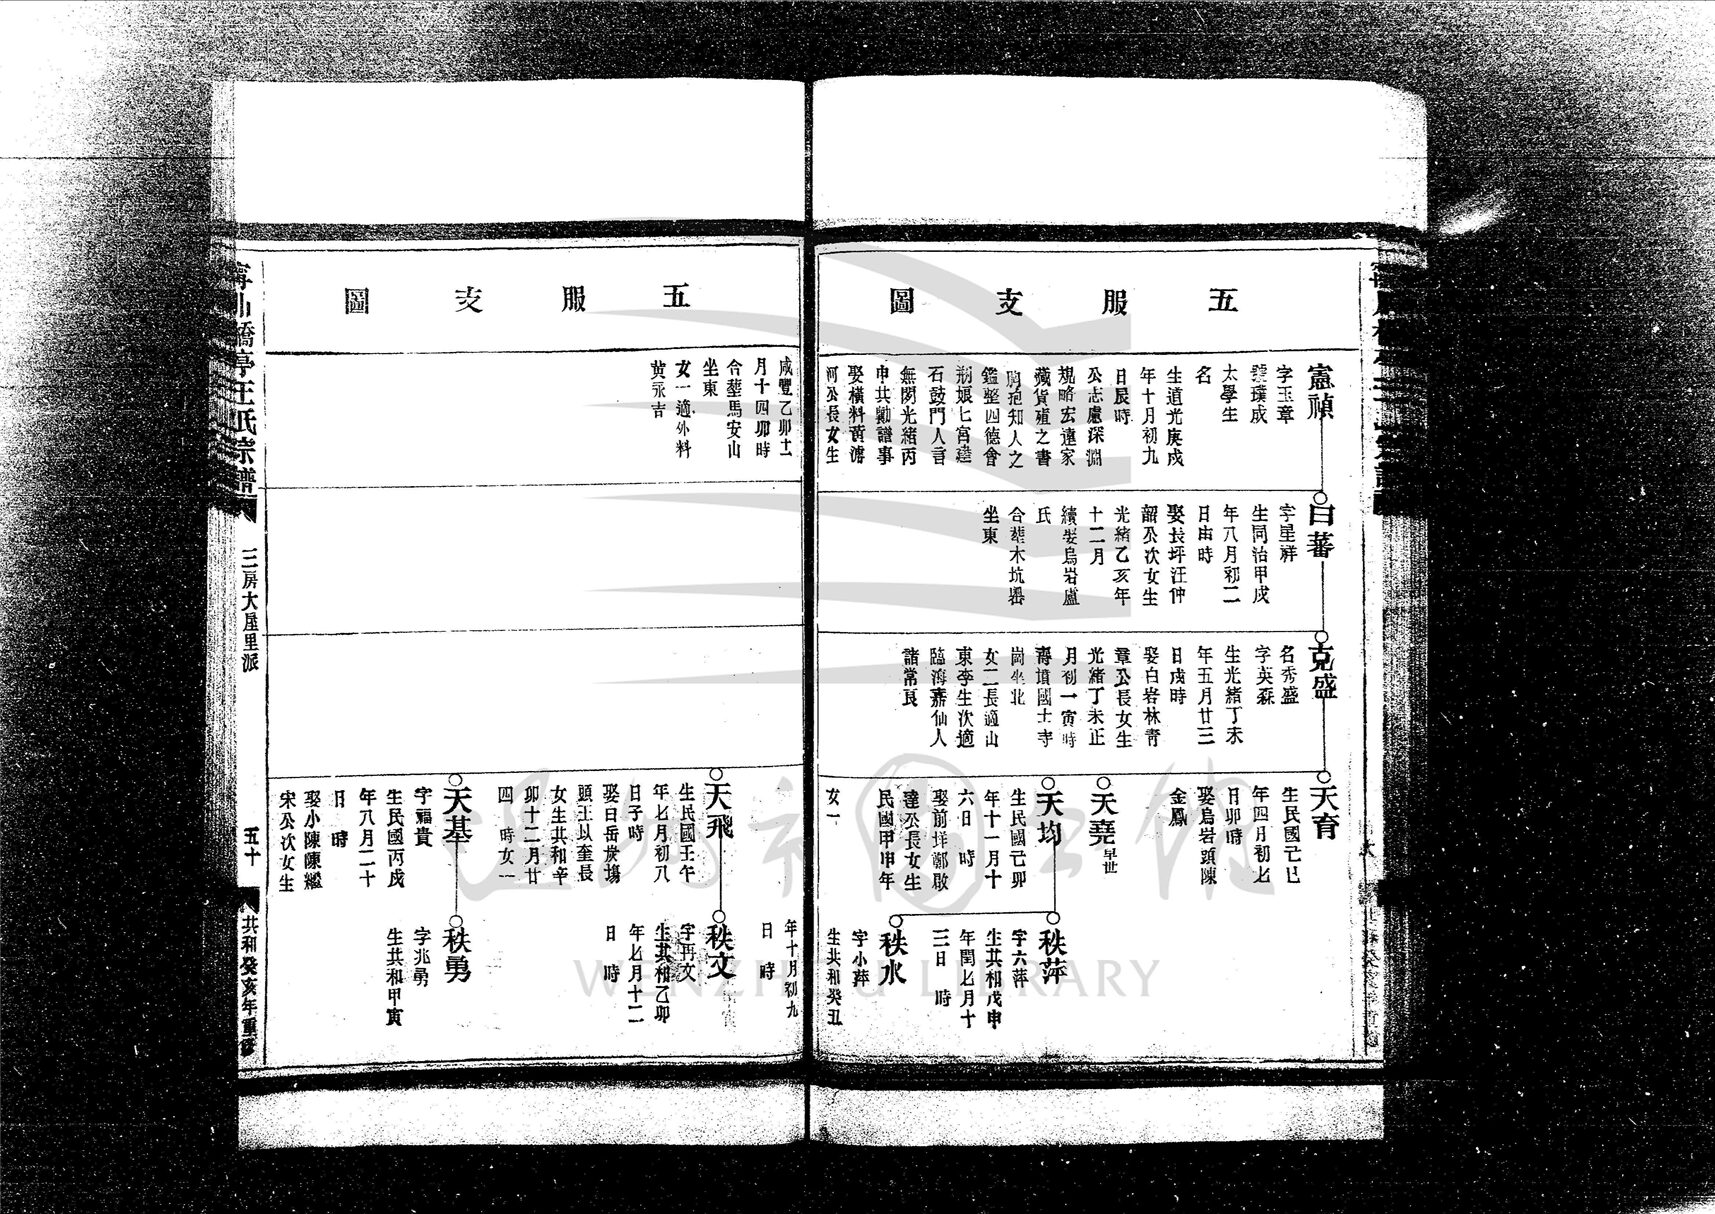 五服支圖
憲禎
字玉章
號璞成
太學生
名
生道光庚戌
年十月初九
日辰時
公志慮深淵
規略宏遠家
藏貨殖之書
胸抱知人之
鑑整四德會
石鼓門人言
無閡光緒丙
申共勷譜事
娶橫料黃濬
河公長女生
曰蕃
字星祥
生同治甲戌
年八月初二
日申時
娶長坪汪仲
韶公次女生
光緒乙亥年
十二月
續娶烏岩盧
氏
合葬木坑嶴
坐東
克盛
名秀盛
字英森
生光緒丁未
年五月廿三
日戌時
娶白岩林青
章公長女生
光緒丁未正
月初一寅時
壽墳國士寺
崗坐北
女二長適山
東李生次適
臨海嘉仙人
諸常良
天育
生民國己巳
年四月初七
日卯時
娶烏岩頭陳
金鳳
天堯
早世
天均
生民國己卯
年十一月十
六日 時
娶前垟鄭啟
達公長女生
民國甲申年
女一
秩萍
字六萍
生共和戊申
年閏七月十
三日 時
秩水
字小萍
生共和癸丑
五服支圖
咸豐乙卯十二
月十四卯時
合葬馬安山
坐東
女一適外料
黃永吉
天飛
生民國壬午
年七月初八
日子時
娶日岳炭塲
頭王以奎長
女生共和辛
卯十二月廿
四 時女一
天基
字福貴
生民國丙戌
年八月二十
日 時
娶小陳陳繼
宋公次女生
年十月初九
日 時
秩文
字再文
生共和乙卯
年七月十二
日 時
秩勇
字兆勇
生共和甲寅
寧川橋亭王氏宗譜
三房大屋里派
五十
共和癸亥年重修
WENZHOU LIBRARY